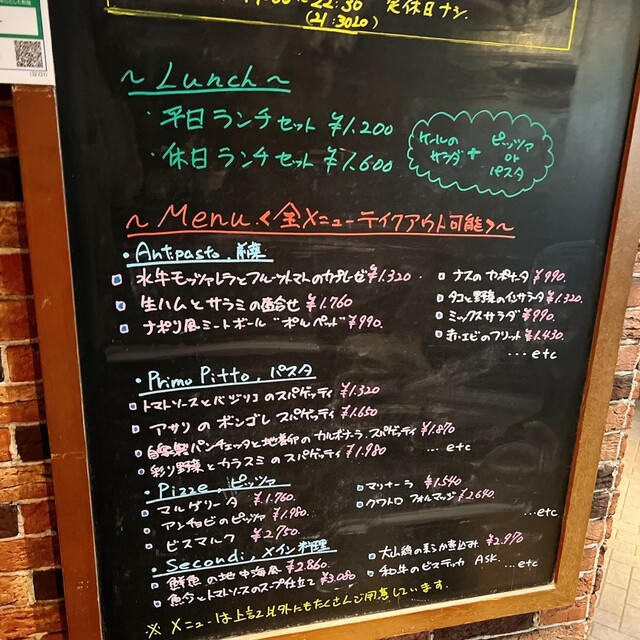 22:30 定休日ナシ
(21:30LO)
~Lunch~
・平日ランチセット ¥1.200
・休日ランチセット ¥1.600
ケールの
サラダ + ピッツァ
or
パスタ
~Menu.<全メニューテイクアウト可能>~
・Antipasto.前菜
水牛モッツァレラとフルーツトマトのカプレーゼ ¥1.320
生ハムとサラミの盛合せ ¥1.760
ナポリ風ミートボール "ポルペッテ" ¥990.
ナスのカポナータ ¥990.
タコと野菜のインサラータ ¥1.320
ミックスサラダ ¥990.
赤エビのフリット ¥1.430
...etc
・Primo Pitto.パスタ
トマトソースとバジリコのスパゲッティ ¥1.320
アサリのボンゴレスパゲッティ ¥1.650
自家製パンチェッタと地養卵のカルボナーラ.スパゲッティ ¥1.870
彩り野菜とカラスミのスパゲッティ ¥1.980
... etc
・Pizze.ピッツァ
マルゲリータ ¥1.760
アンチョビのピッツァ ¥1.980
ビスマルク ¥2.750
マリナーラ ¥1.540
クワトロ フォルマッジ ¥2.640.
...etc
・Secondi.メイン料理
鮮魚の地中海風 ¥2.860
魚介とトマトソースのスープ仕立て ¥3.080
大山鶏の柔らか煮込み ¥2.970
和牛のビステッカ ASK.
...etc
※ メニューは上記以外にもたくさんご用意しています.